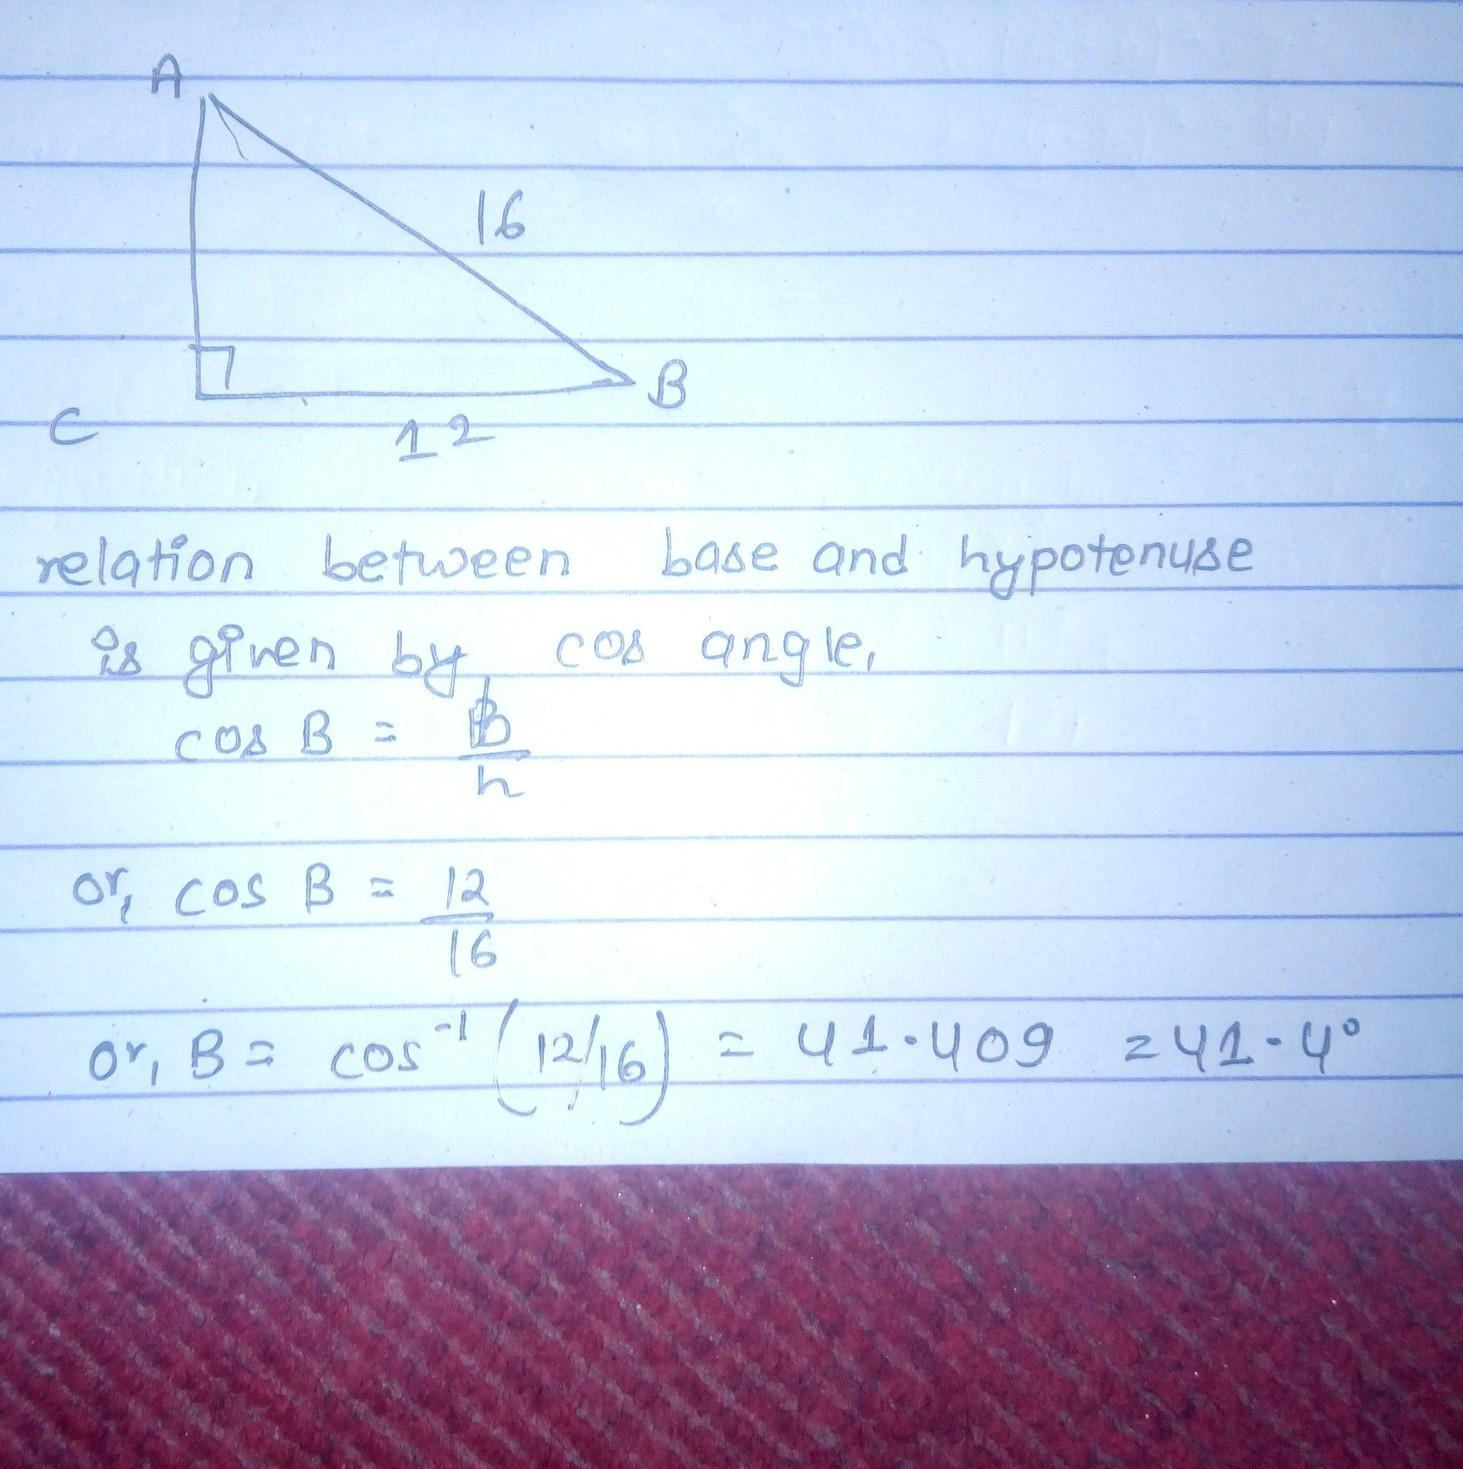 A
16
B
C
12
relation between base and hypotenuse
is given by, cos angle,
cos B = b/h
or, cos B = 12/16
or, B = cos⁻¹ (12/16) = 41.409 = 41.4°